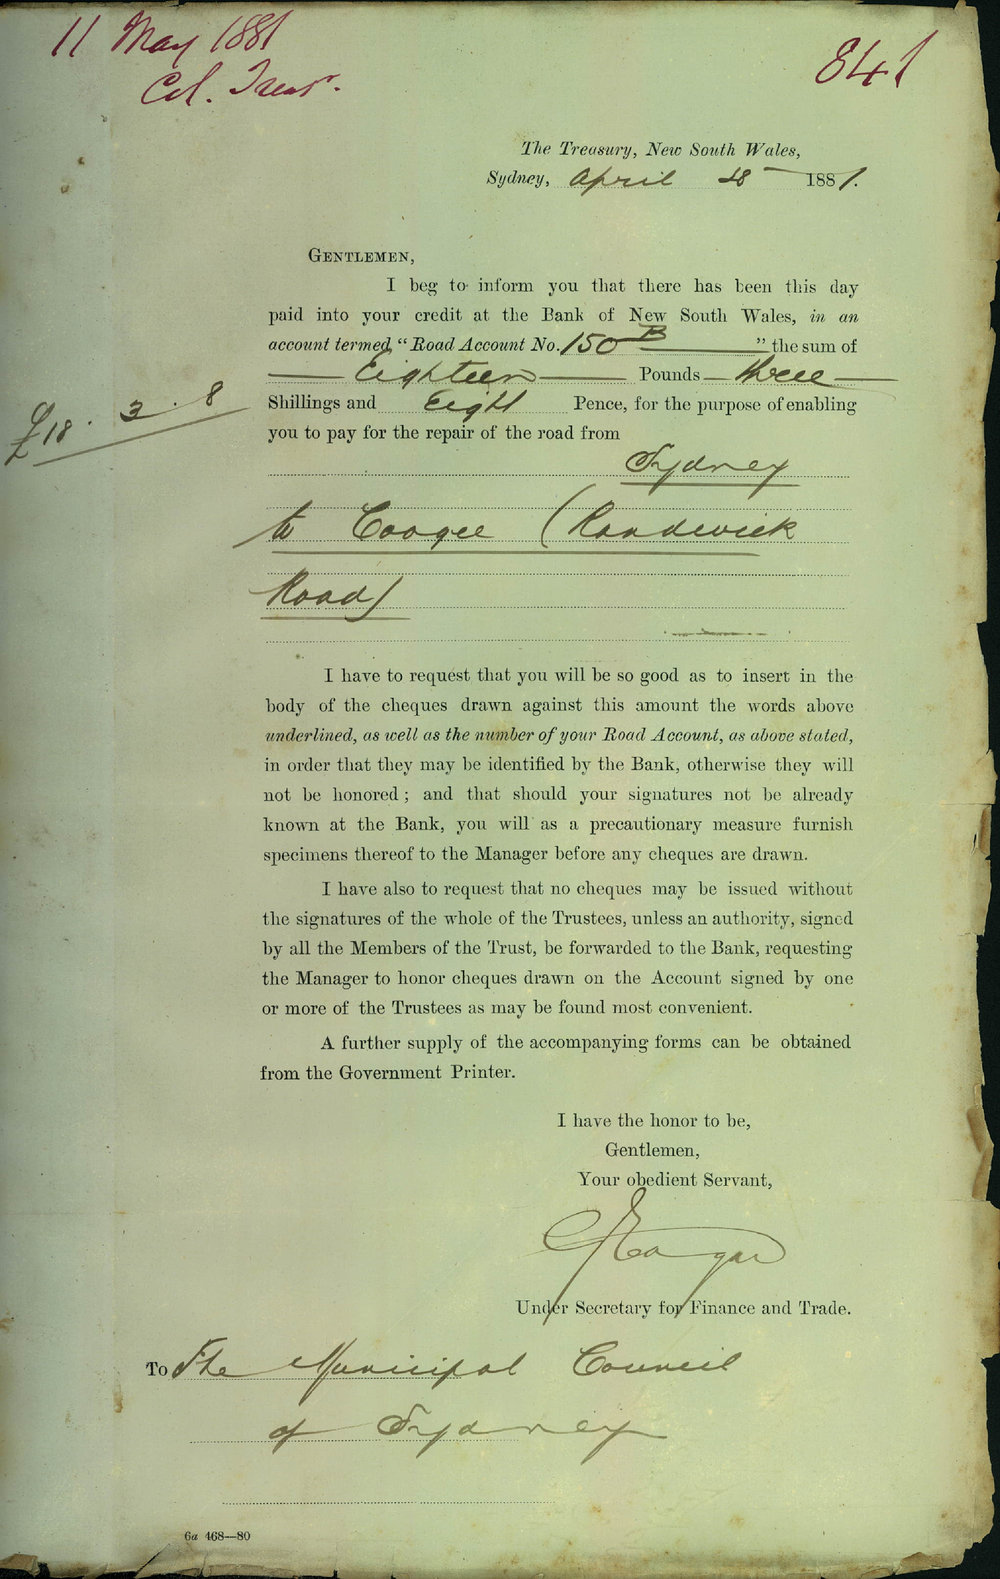 11 May 1881
Col. Treasr.
841
The Treasury, New South Wales,
Sydney, April 28 1881.
GENTLEMEN,
I beg to inform you that there has been this day
paid into your credit at the Bank of New South Wales, in an
account termed "Road Account No. 150 B " the sum of
Eighteen Pounds three
£18. 3. 8
Shillings and Eight Pence, for the purpose of enabling
you to pay for the repair of the road from
Sydney
to Coogee (Randwick
Road)
I have to request that you will be so good as to insert in the
body of the cheques drawn against this amount the words above
underlined, as well as the number of your Road Account, as above stated,
in order that they may be identified by the Bank, otherwise they will
not be honored; and that should your signatures not be already
known at the Bank, you will as a precautionary measure furnish
specimens thereof to the Manager before any cheques are drawn.
I have also to request that no cheques may be issued without
the signatures of the whole of the Trustees, unless an authority, signed
by all the Members of the Trust, be forwarded to the Bank, requesting
the Manager to honor cheques drawn on the Account signed by one
or more of the Trustees as may be found most convenient.
A further supply of the accompanying forms can be obtained
from the Government Printer.
I have the honor to be,
Gentlemen,
Your obedient Servant,
G Eagar
Under Secretary for Finance and Trade.
To The Municipal Council
of Sydney
6a 468—80